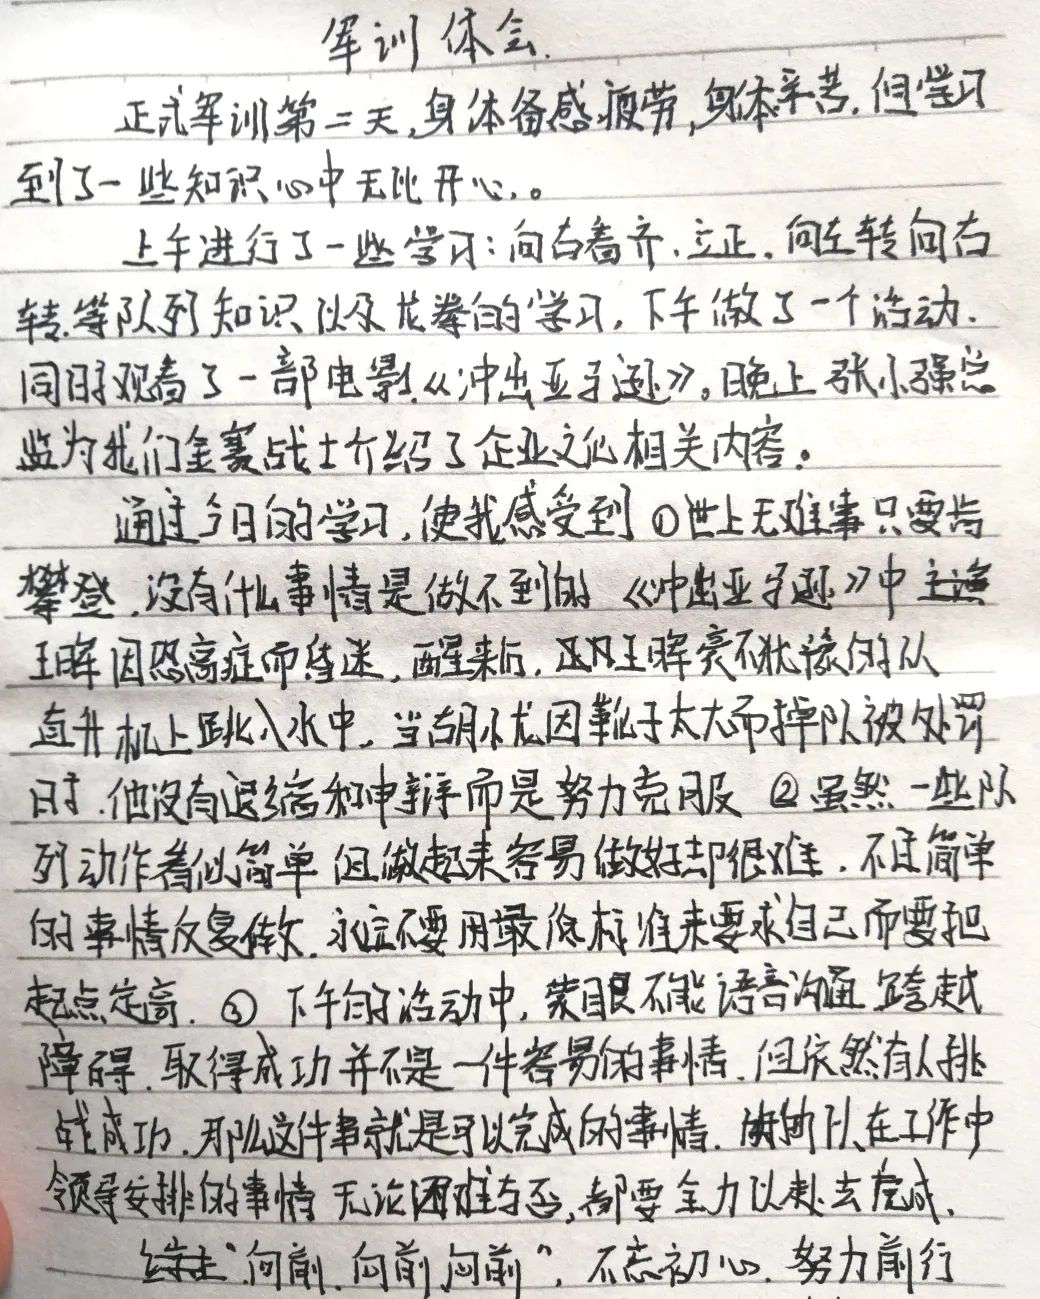 军训体会.
正式军训第二天,身体备感疲劳,身体辛苦.但学习
到了一些知识心中无比开心.。
上午进行了一些学习:向右看齐.立正.向左转向右
转.等队列知识以及龙拳的学习,下午做了一个活动.
同时观看了一部电影《冲出亚马逊》。晚上张小强总
监为我们金赛战士介绍了企业文化相关内容.
通过今日的学习,使我感受到①世上无难事只要肯
攀登.没有什么事情是做不到的《冲出亚马逊》中
王晖因恐高症而昏迷,醒来后,王晖豪不犹豫的从
直升机上跳入水中.当胡小龙因靴子太大而掉队被处罚
时.他没有退缩和申辩而是努力克服②虽然一些队
列动作看似简单但做起来容易做好却很难.不过简单
的事情反复做.永远不要用最低标准来要求自己而要把
起点定高.③下午的活动中,蒙眼不能语音沟通跨越
障碍.取得成功并不是一件容易的事情.但依然有人挑
战成功.那么这件事就是可以完成的事情.在工作中
领导安排的事情无论困难与否,都要全力以赴去完成.
"向前.向前向前".不忘初心.努力前行